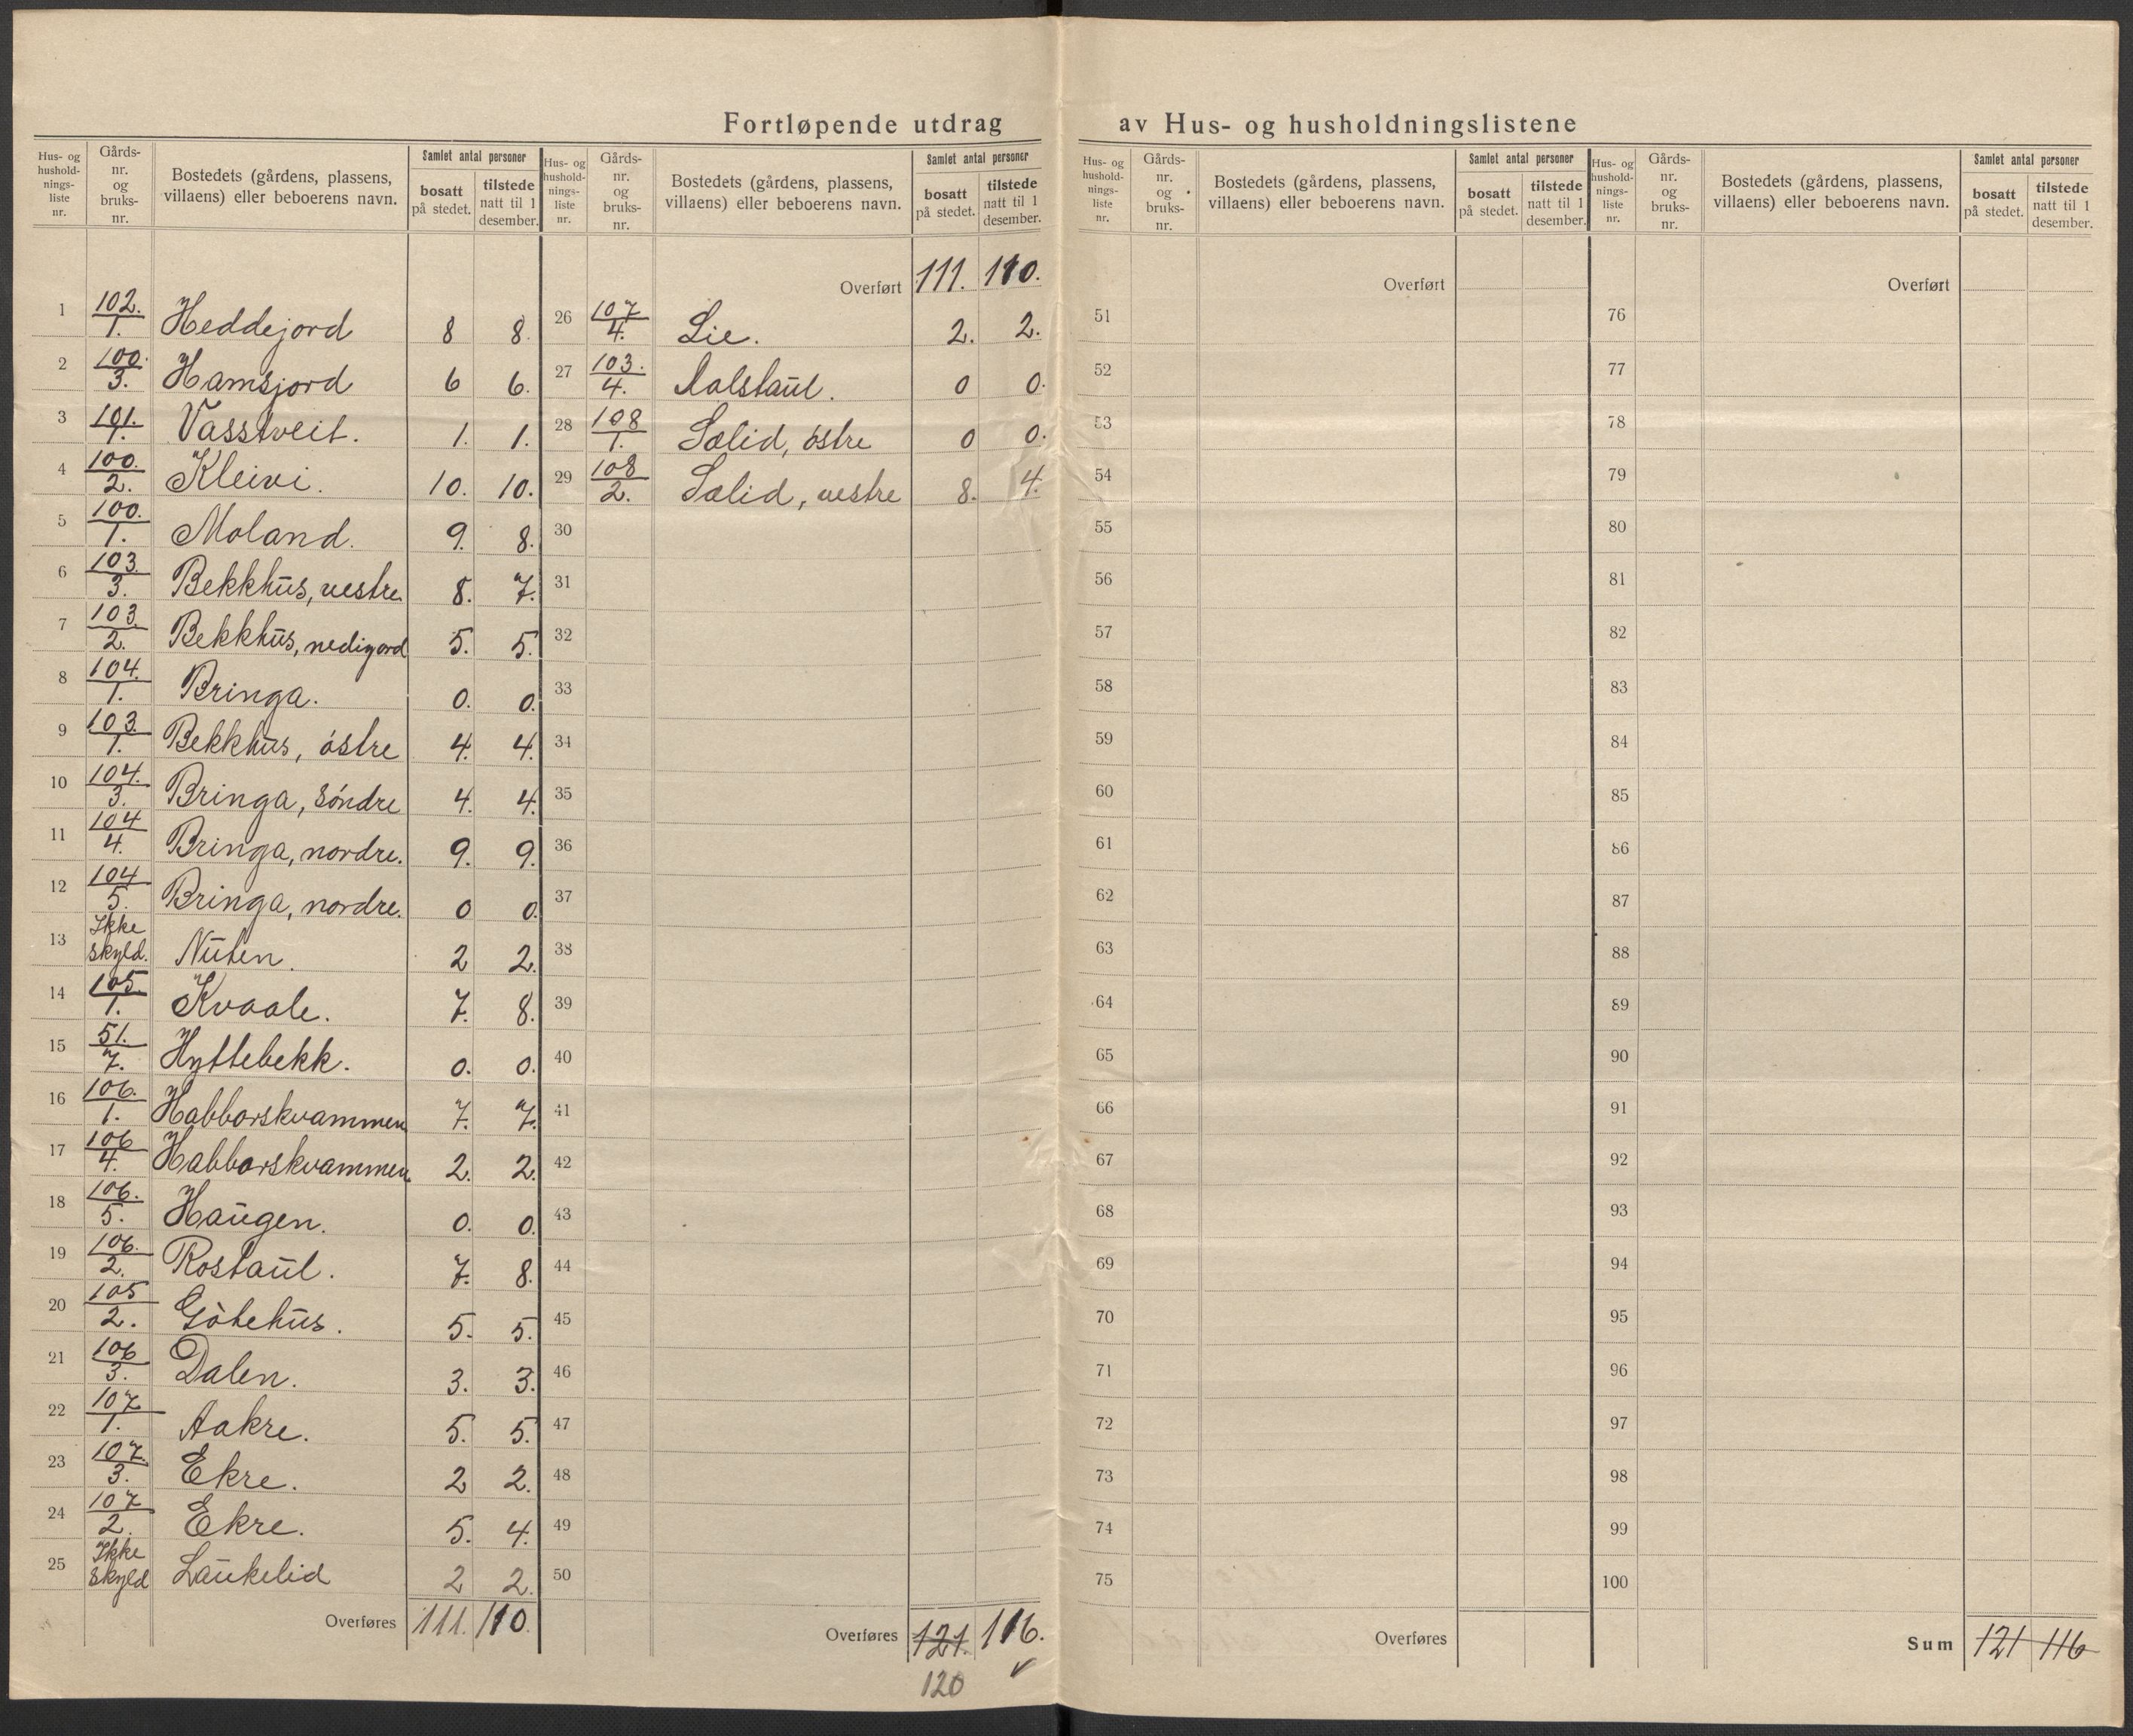 Fortløpende utdrag av Hus- og husholdningslistene
Hus- og hushold-nings-liste nr. Gårds-nr. og bruks-nr. Bostedets (gårdens, plassens, villaens) eller beboerens navn. Samlet antal personer bosatt på stedet. tilstede natt til 1 desember.
1 102./1. Heddejord 8 8.
2 100./3. Hamsjord 6 6.
3 101./1. Vasstveit. 1. 1.
4 100./2. Kleivi. 10. 10.
5 100./1. Moland. 9. 8.
6 103./3. Bekkhus, vestre 8. 7.
7 103./2. Bekkhus, nedigord 5. 5.
8 104./1. Bringa. 0. 0.
9 103./1. Bekkhus, østre 4. 4.
10 104./3. Bringa, søndre 4. 4.
11 104/4. Bringa, nordre. 9. 9.
12 104/5. Bringa, nordre. 0 0.
13 Ikke skyld. Nuten. 2 2.
14 105./1. Kvaale. 7. 8.
15 51./7. Hyttebekk. 0. 0.
16 106./1. Habborskvammen 7. 7.
17 106/4. Habborskvammen. 2. 2.
18 106./5. Haugen. 0. 0.
19 106./2. Rostaul. 7. 8.
20 105/2. Götehus. 5. 5.
21 106/3. Dalen. 3. 3.
22 107/1. Aakre. 5. 5.
23 107./3. Ekre. 2 2.
24 107/2. Ekre. 5. 4.
25 Ikke skyld Laukelid 2 2.
Overføres 111. 110.
Hus- og hushold-nings-liste nr. Gårds-nr. og bruks-nr. Bostedets (gårdens, plassens, villaens) eller beboerens navn. Samlet antal personer bosatt på stedet. tilstede natt til 1 desember.
Overført 111. 110.
26 107/4. Lie. 2. 2.
27 103./4. Aalstaul. 0 0.
28 108/1. Solid, østre 0 0.
29 108/2. Solid, vestre 8. 4.
30
31
32
33
34
35
36
37
38
39
40
41
42
43
44
45
46
47
48
49
50
Overføres 121. 116.
120
Hus- og hushold-nings-liste nr. Gårds-nr. og bruks-nr. Bostedets (gårdens, plassens, villaens) eller beboerens navn. Samlet antal personer bosatt på stedet. tilstede natt til 1 desember.
Overført
51
52
53
54
55
56
57
58
59
60
61
62
63
64
65
66
67
68
69
70
71
72
73
74
75
Overføres
Hus- og hushold-nings-liste nr. Gårds-nr. og bruks-nr. Bostedets (gårdens, plassens, villaens) eller beboerens navn. Samlet antal personer bosatt på stedet. tilstede natt til 1 desember.
Overført
76
77
78
79
80
81
82
83
84
85
86
87
88
89
90
91
92
93
94
95
96
97
98
99
100
Sum 121 116